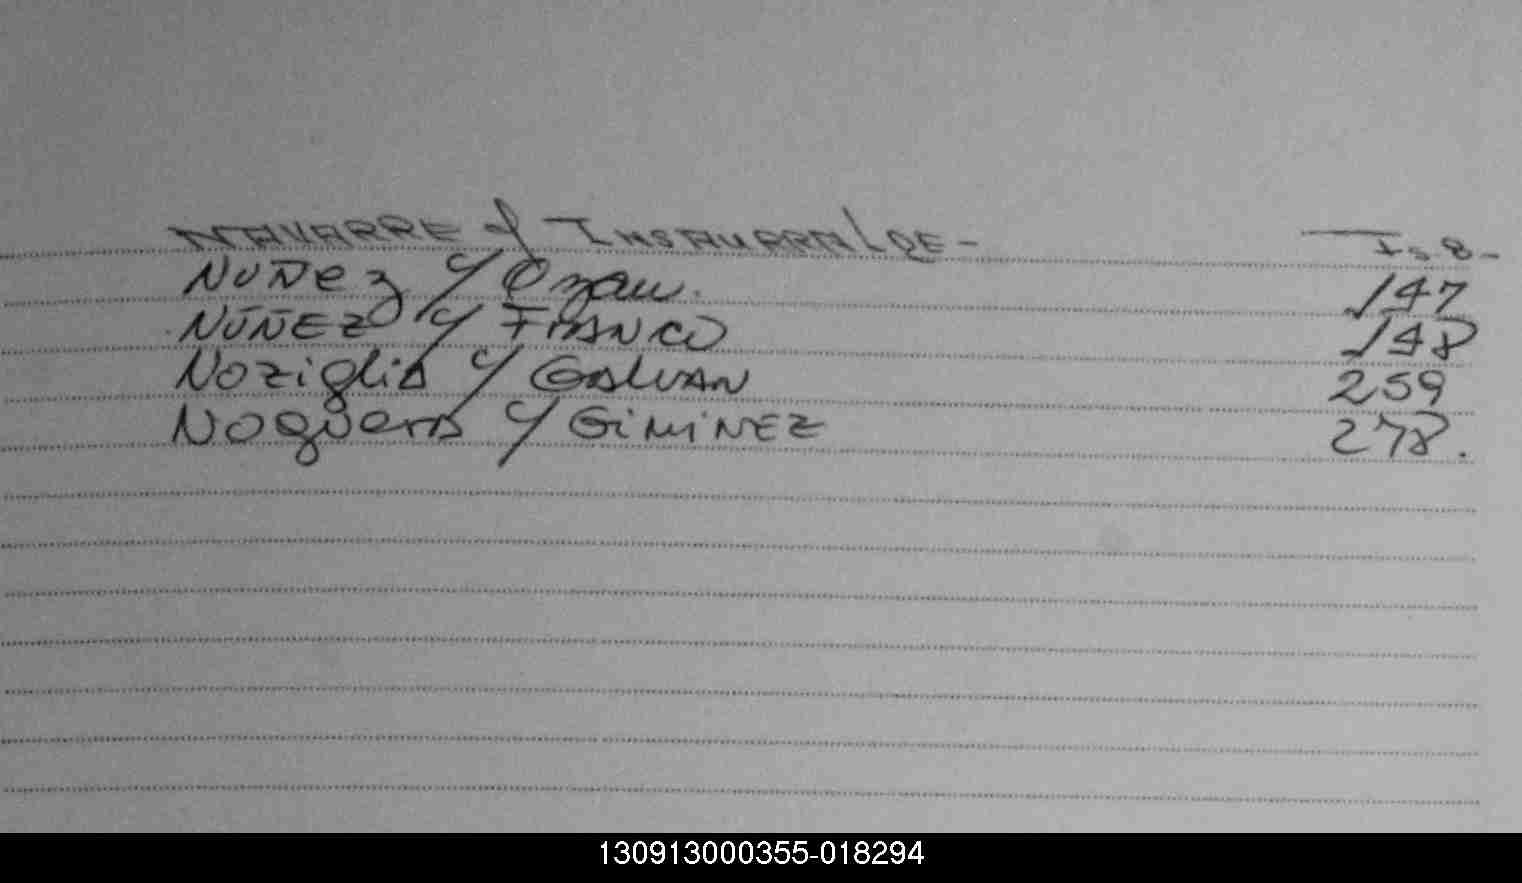 NAVARRE y INSAURRALDE -
NUÑEZ y Ozan. 147
NÚÑEZ y FRANCO 148
Noziglia y GALVAN 259
Noguera y GIMINEZ 278.
130913000355-018294